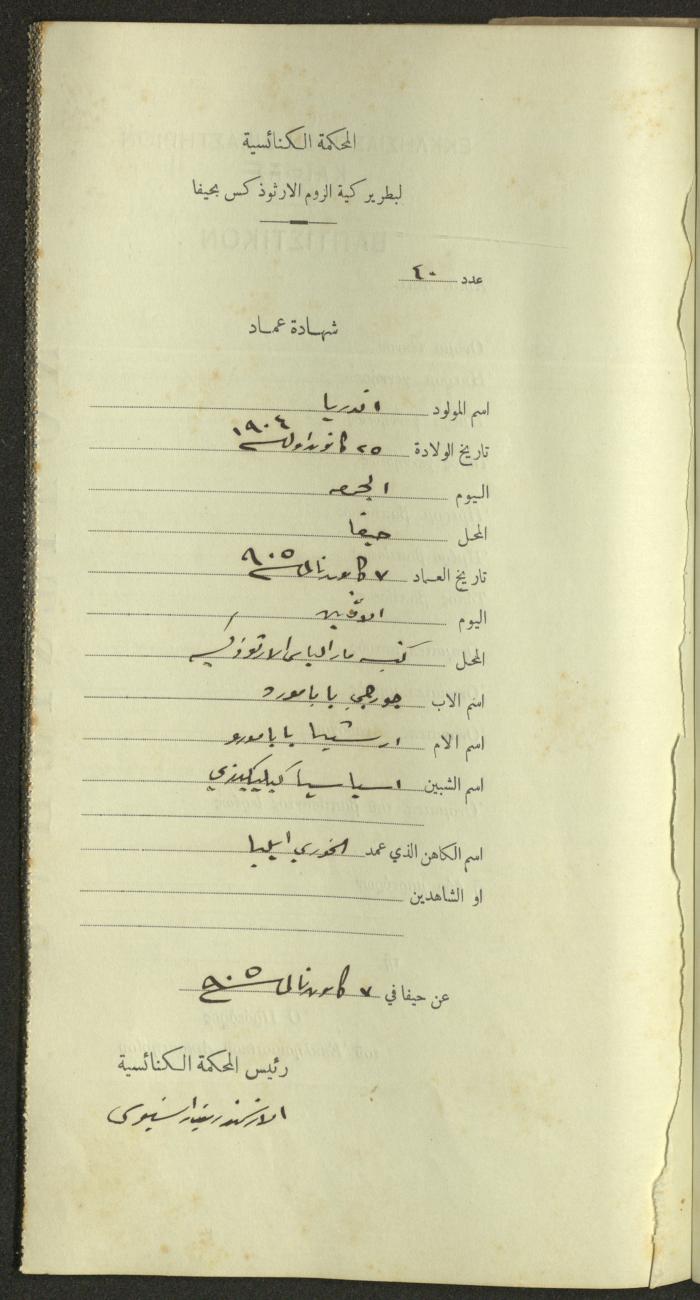 المحكمة الكنائسية
لبطريركية الروم الارثوذكس بحيفا
عدد ٤٠
شهادة عماد
اسم المولود اندريا
تاريخ الولادة ٢٥ كانون اول سنة ١٩٠٤
اليوم الجمعه
المحل حيفا
تاريخ العماد ٧ كانون ثاني سنة ٩٠٥
اليوم الاثنين
المحل كنيسة مار الياس الارثوذكسية
اسم الاب جورجي بابامورو
اسم الام بابامورو
اسم الشبين
اسم الكاهن الذي عمد الخوري ايليا
او الشاهدين
عن حيفا في ٧ كانون ثاني سنة ٩٠٥
رئيس المحكمة الكنائسية